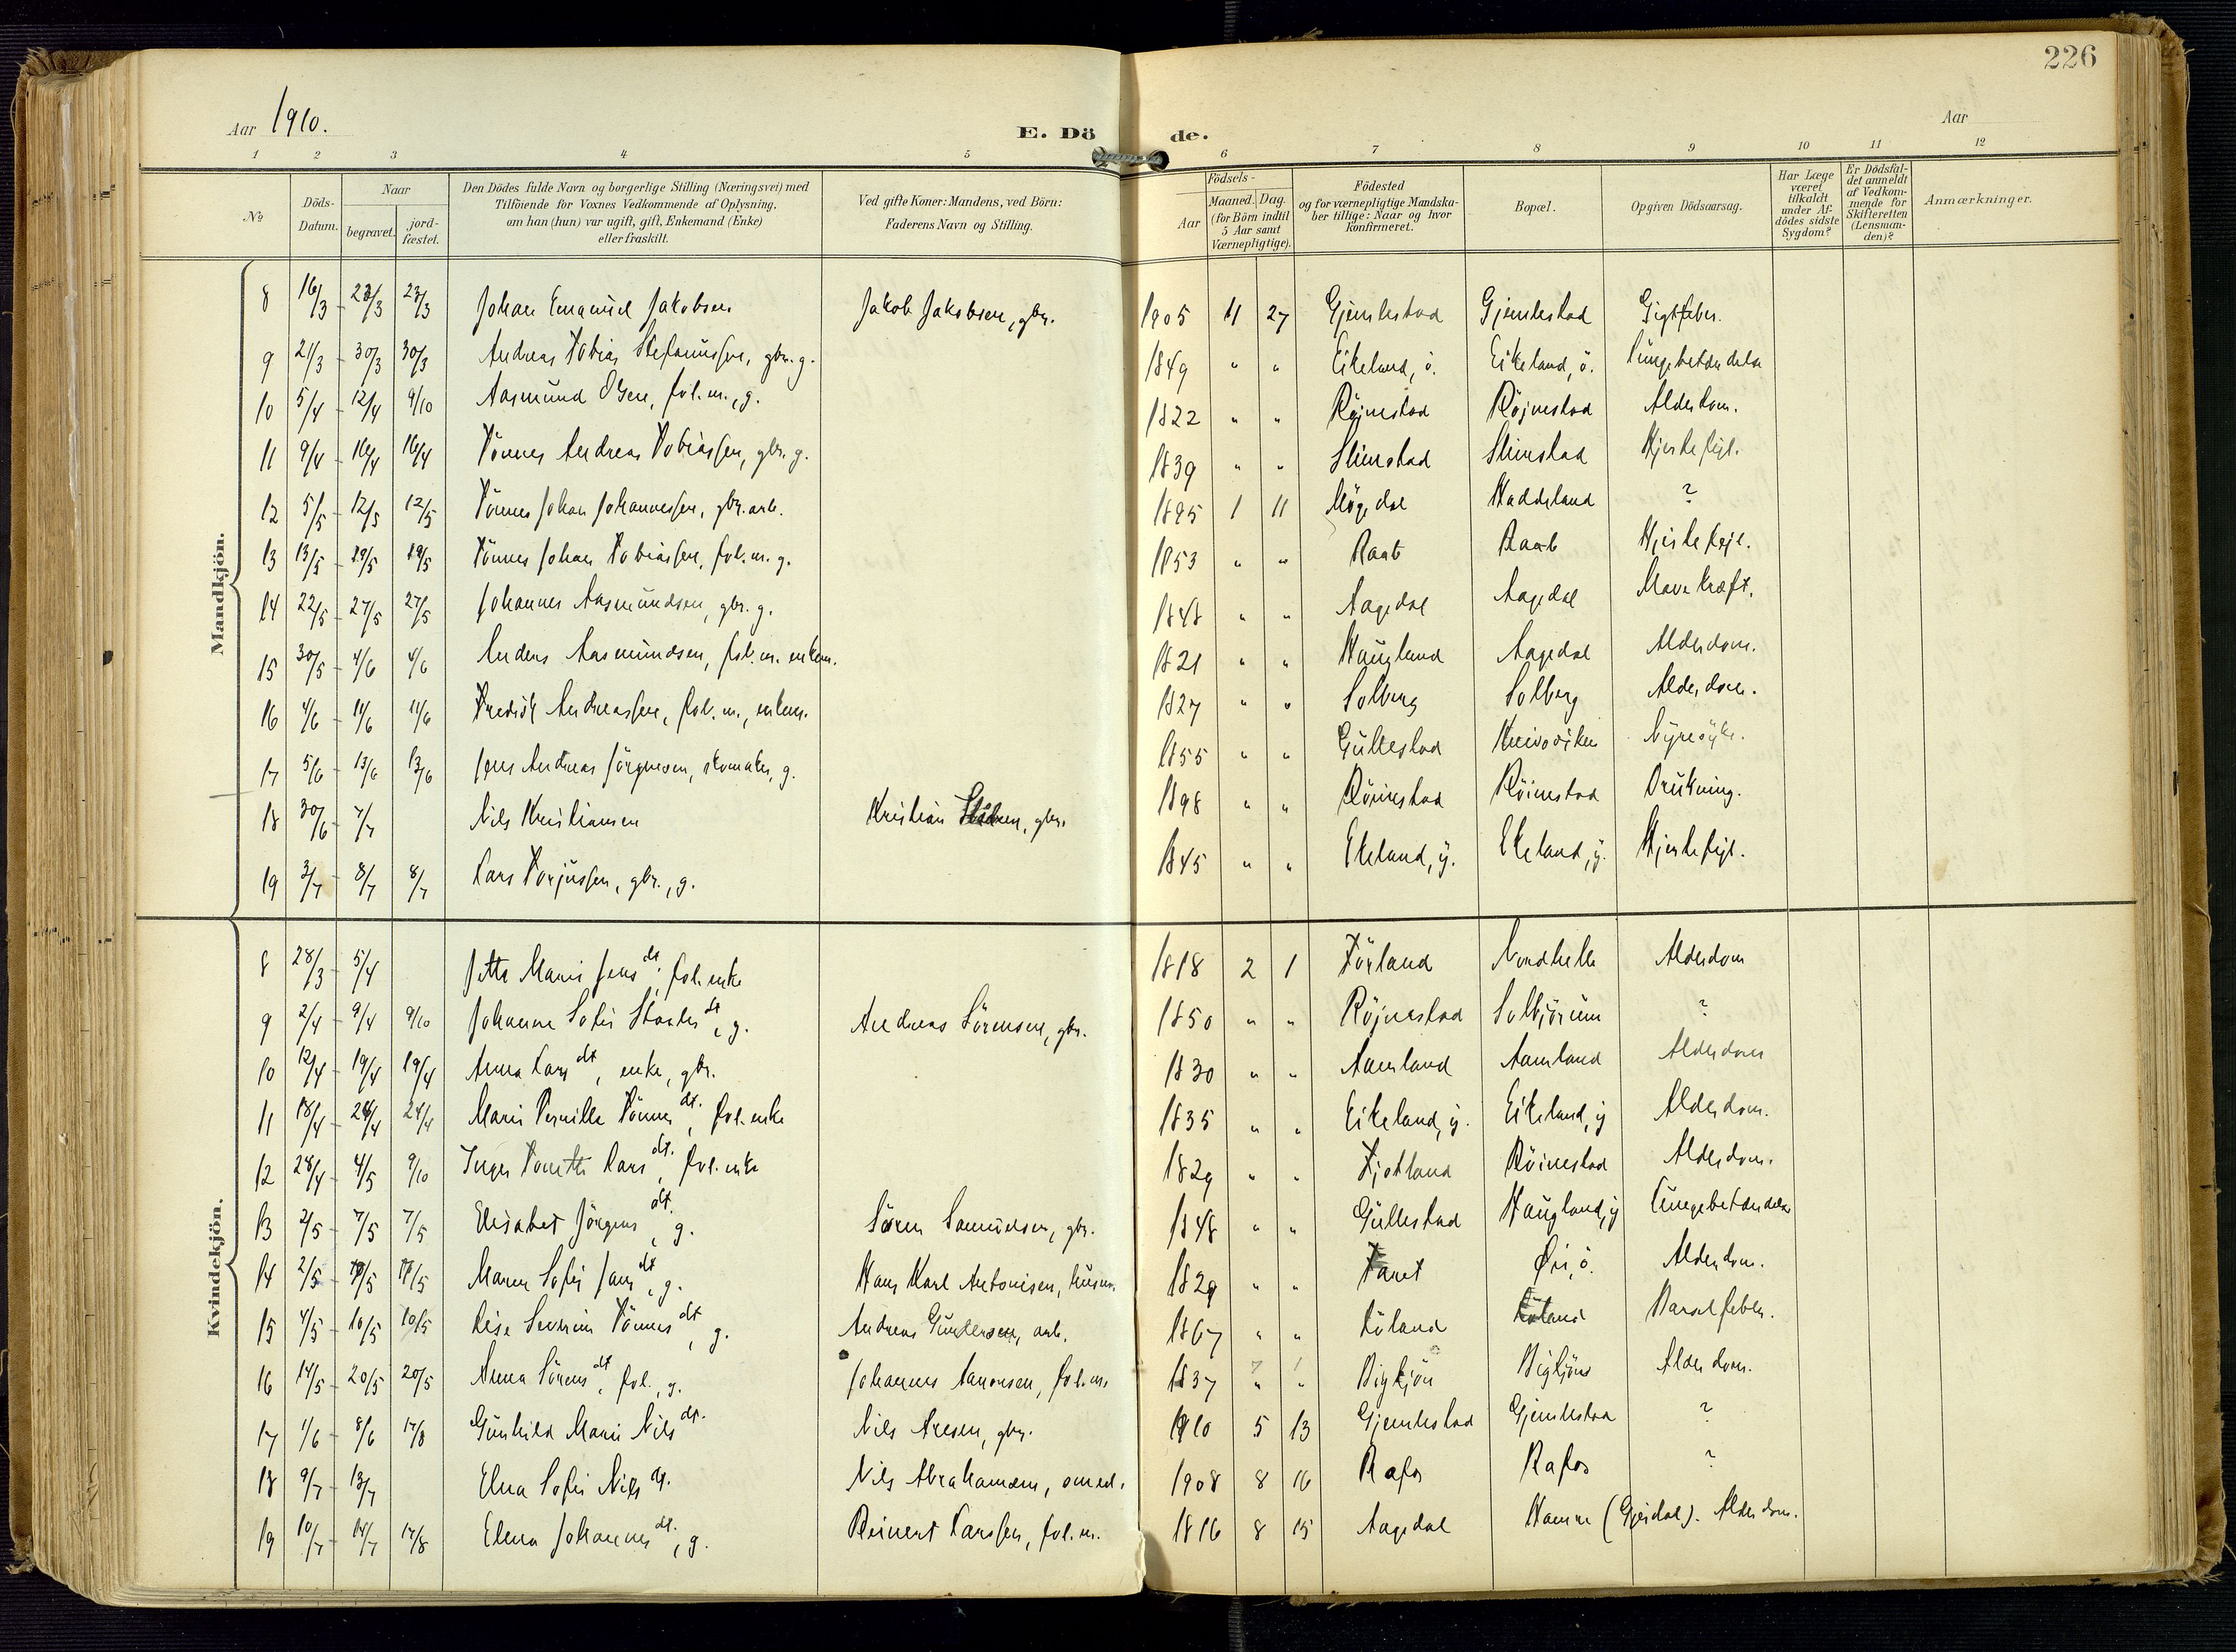 226
Aar 1910.
E. Dö de.
Aar
1 2 3 4 5 6 7 8 9 10 11 12
No
Döds-Datum.
Naar
begravet.
jord-fæstet.
Den Dödes fulde Navn og borgerlige Stilling (Næringsvei) med
Tilföiende for Voxnes Vedkommende af Oplysning,
om han (hun) var ugift, gift, Enkemand (Enke)
eller fraskilt.
Ved gifte Koner: Mandens, ved Börn:
Faderens Navn og Stilling.
Födsels-
Aar
Maaned. Dag.
(for Börn indtil
5 Aar samt
Værnepligtige).
Födested
og for værnepligtige Mandska-
ber tillige: Naar og hvor
konfirmeret.
Bopæl.
Opgiven Dödsaarsag.
Har Læge
været
tilkaldt
under Af-
dödes sidste
Sygdom?
Er Dödsfal-
det anmeldt
af Vedkom-
mende for
Skifteretten
(Lensman-
den)?
Anmærkninger.
Mandkjön.
8 16/3 - 23/3 23/3 Johan Emanuel Jakobsen Jakob Jakobsen, gbr. 1905 11 27 Gjemlestad Gjemlestad Gigtfeber.
9 21/3 - 30/3 30/3 Andreas Tobias Stefanussen, gbr. g. 1849 " " Eikeland, ö. Eikeland, ö. Lungebetændelse
10 5/4 - 12/4 9/10 Aasmund Olsen, fol. m., g. 1822 " " Röjnestad Röjnestad Alderdom.
11 9/4 - 16/4 16/4 Tönnes Andreas Tobiassen, gbr. g. 1839 " " Slimestad Slimestad Hjertefejl.
12 5/5 - 12/5 12/5 Tönnes Johan Johannessen, gbr. arb. 1895 1 11 Mögedal Haddeland ?
13 13/5 - 19/5 19/5 Tönnes Johan Tobiassen, fol. m. g. 1853 " " Raab Raab Hjertefejl.
14 22/5 - 27/5 27/5 Johannes Aasmundsen, gbr. g. 1848 " " Aagedal Aagedal Mavekræft.
15 30/5 - 4/6 4/6 Anders Aasmundsen, fol. m. enkem. 1821 " " Haugland Aagedal Alderdom.
16 4/6 - 11/6 11/6 Fredrik Andreassen, fol. m., enkem. 1827 " " Solberg Solberg Alderdom.
17 5/6 - 13/6 13/6 Jens Andreas Jörgensen, skomaker, g. 1855 " " Gullestad Nyresyke.
18 30/6 - 7/7 Nils Kristiansen Kristian gbr. 1898 " " Röinestad Röinestad Drukning.
19 3/7 - 8/7 8/7 Lars Torjussen, gbr., g. 1845 " " Ekeland, y. Ekeland, y. Hjertefejl.
Kvindekjön.
8 28/3 - 5/4 Jette Marie Jens dt., fol. enke 1818 2 1 Förland Nordhelle Alderdom
9 2/4 - 9/4 9/10 Johanne Sofie dt, g. Andreas Sörensen, gbr. 1850 " " Röjnestad ?
10 12/4 - 19/4 19/4 Anna Lars dt, enke, gbr. 1830 " " Aamland Aamland Alderdom
11 18/4 - 24/4 24/4 Marie Pernille Tönnes dt., fol. enke 1835 " " Eikeland, y. Eikeland, y Alderdom.
12 28/4 - 4/5 9/10 Inger Tonette Lars dt. fol. enke 1829 " " Fjotland Röinestad Alderdom.
13 2/5 - 7/5 7/5 Elisabet Jörgens dt., g. Sören Samuelsen, gbr. 1848 " " Gullestad Haugland, y Lungebetændelse
14 2/5 - 17/5 17/5 Maren Sofie Jans dt, g. Hans Karl Antonisen, husm. 1829 " " Öie, ö. Alderdom.
15 4/5 - 10/5 10/5 Lise Severine Tönnes dt, g. Andreas Gundersen, arb. 1867 " " Löland Löland Barselfeber.
16 14/5 - 20/5 20/5 Anna Sörens dt, fol., g. Johannes Aanonsen, fol. m. 1837 " " Birkjön Birkjön Alderdom.
17 1/6 - 8/6 14/8 Gunhild Marie Nils dt. Nils Aresen, gbr. 1910 5 13 Gjemlestad Gjemlestad ?
18 9/7 - 13/7 Elna Sofie Nils dt. Nils Abrahamsen, smed. 1908 8 16 Rafos Rafos ?
19 10/7 - 14/7 14/8 Elena Johannes dt., g. Reinert Larssen, fol. m. 1816 8 15 Aagedal Hamre (Gyjedal). Alderdom.